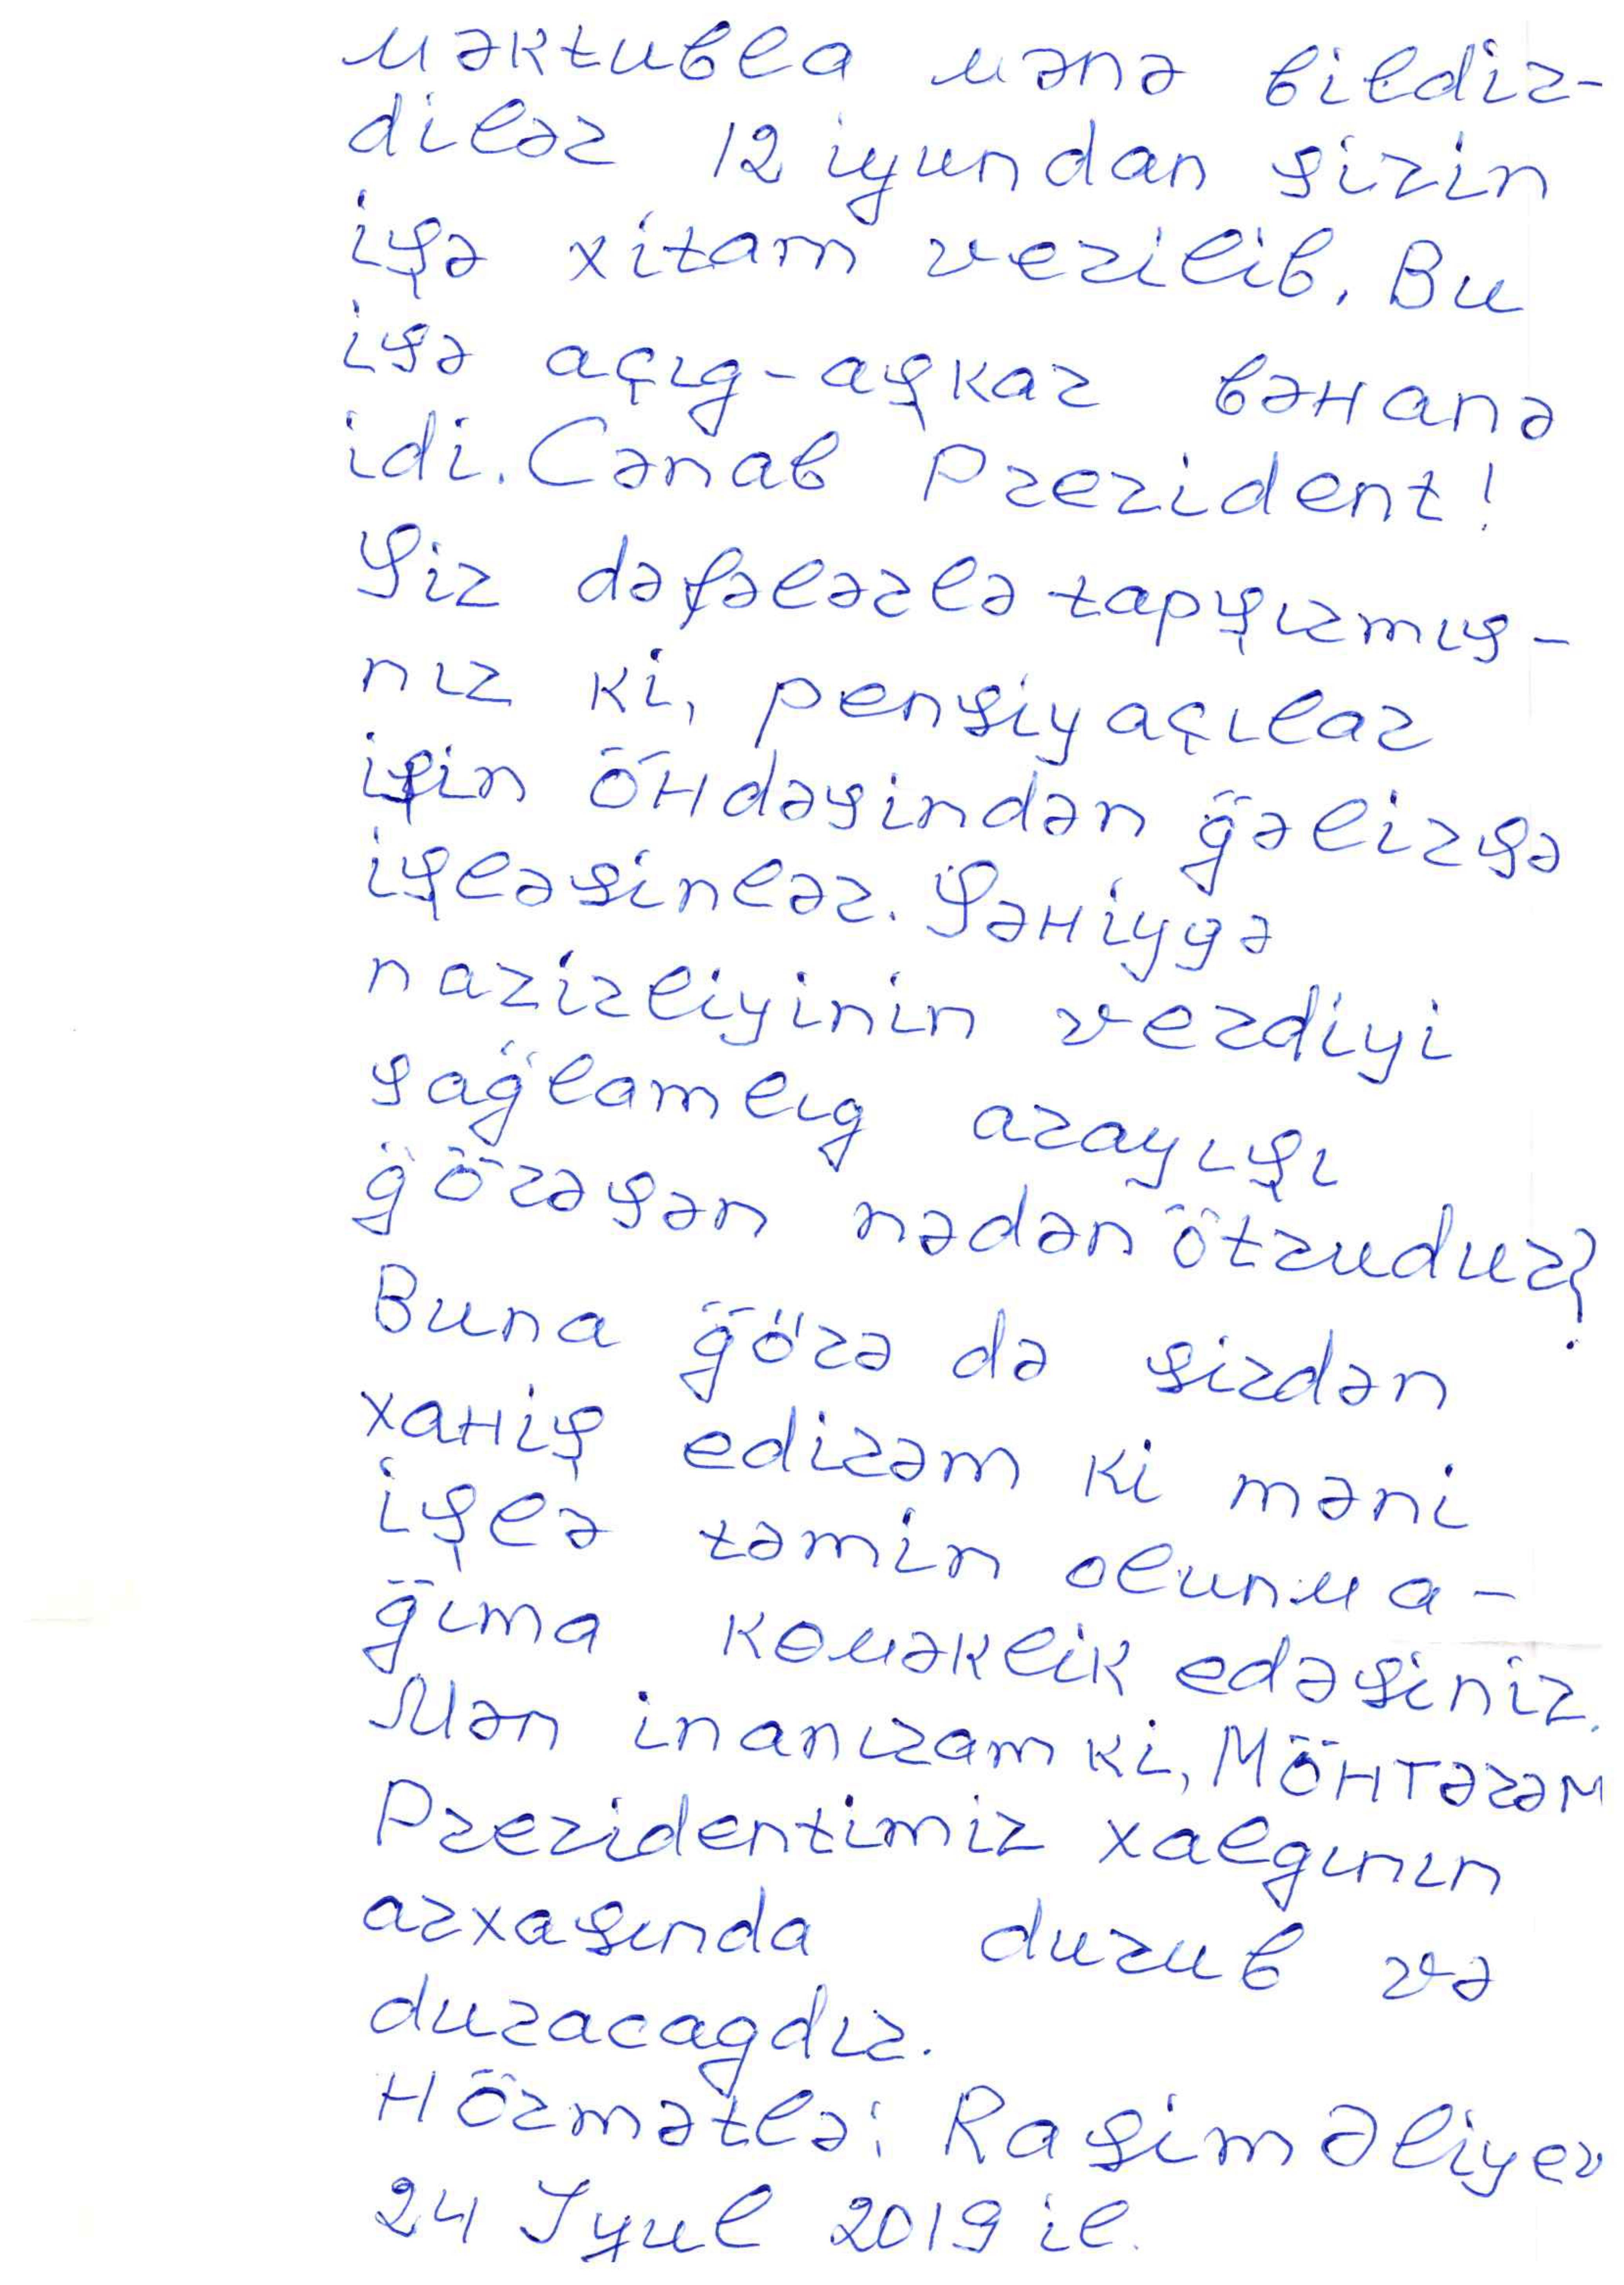 məktubla mənə bildir-
dilər 12 iyundan sizin
işə xitam verilib. Bu
isə açıg-aşkar bəhanə
idi. Cənab Prezident!
Siz dəfələrlə tapşırmış-
nız ki, pensiyaçılar
işin öhdəsindən gəlirsə
işləsinlər. Səhiyyə
nazirliyinin verdiyi
sağlamlıg arayışı
görəsən nədən ötrudur?
Buna görə də sizdən
xahiş edirəm ki məni
işlə təmin olunma-
ğıma koməklik edəsiniz.
Mən inanıram ki, Möhtərəm
Prezidentimiz xalgının
arxasında durub və
duracagdır.
Hörmətlə: Rasim Əliyev
24 Iyul 2019 il.